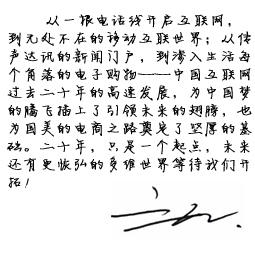 从一根电话线开启互联网，
到无处不在的移动互联世界；从传
声达讯的新闻门户，到渗入生活每
个角落的电子购物——中国互联网
过去二十年的高速发展，为中国梦
的腾飞插上了引领未来的翅膀，也
为国美的电商之路奠定了坚厚的基
础。二十年，只是一个起点，未来
还有更恢弘的多维世界等待我们开
拓！